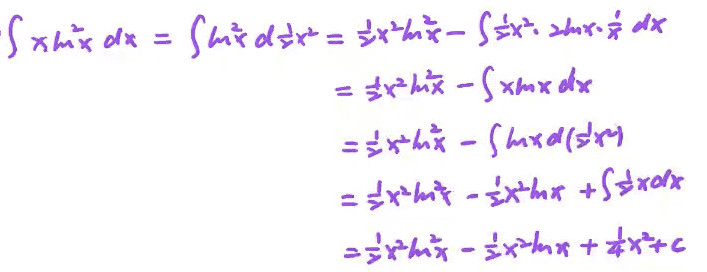 ∫ x ln²x dx = ∫ ln²x d ½x² = ½x² ln²x − ∫ ½x² · 2lnx · 1/x dx
= ½x² ln²x − ∫ x lnx dx
= ½x² ln²x − ∫ lnx d(½x²)
= ½x² ln²x − ½x² lnx + ∫ ½x dx
= ½x² ln²x − ½x² lnx + ¼x² + c